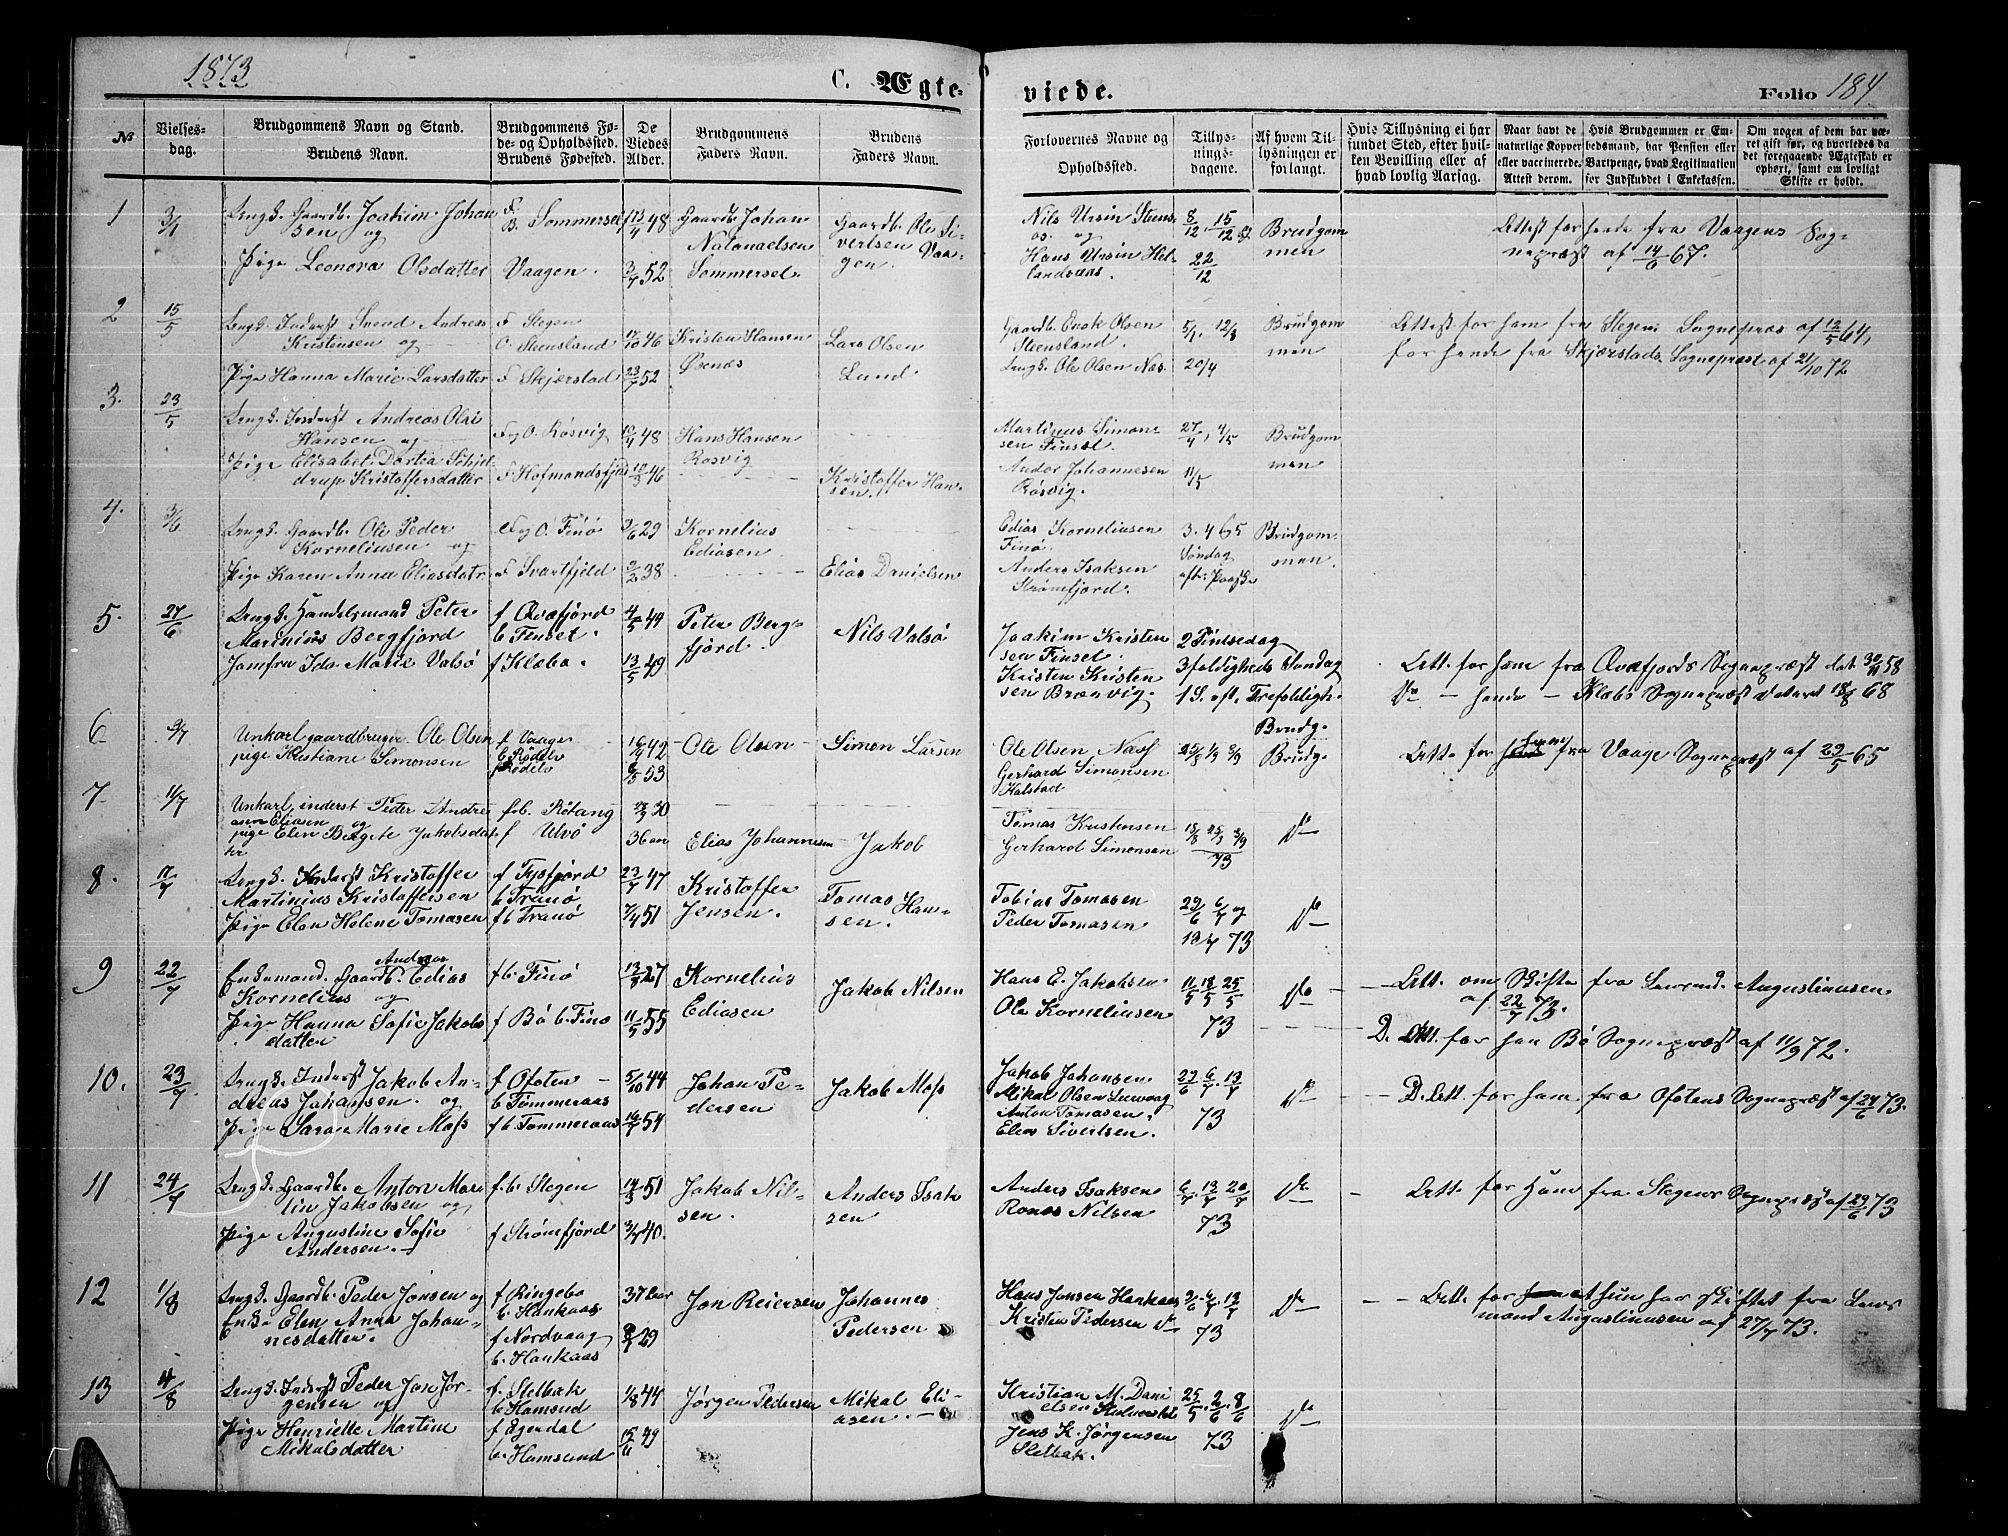 1873
C. Ægte-
viede.
Folio 184.
№
Vielses-
dag.
Brudgommens Navn og Stand.
Brudens Navn.
Brudgommens Fø-
de- og Opholdssted.
Brudens Fødested.
De
Viedes
Alder.
Brudgommens
Faders Navn.
Brudens
Faders Navn.
Forlovernes Navne og
Opholdssted.
Tillys-
nings-
dagene.
Af hvem Til-
lysningen er
forlangt.
Hvis Tillysning ei har
fundet Sted, efter hvil-
ken Bevilling eller af
hvad lovlig Aarsag.
Naar havt de
naturlige Kopper
eller vaccinerede.
Attest derom.
Hvis Brudgommen er Em-
bedsmand, har Pension eller
Vartpenge, hvad Legitimation
for Indskuddet i Enkekassen.
Om nogen af dem har væ-
ret gift før, og hvorledes da
det foregaaende Ægteskab er
ophørt, samt om lovligt
Skifte er holdt.
1 3/1 Ungk. Gaardb. Joakim Johan
sen og
Pige Leonora Olsdatter
F.
B. Sommersel
Vaagen.
13/4 48
3/7 52
Gaardb. Johan
Natanaelsen
Sommersel.
Gaardb. Ole Si-
vertsen Vaa-
gen.
Nils Ursin Stens-
os. og
Hans Ursin Hel-
landsaas.
8/12. 15/12 og
22/12
Brudgom
men
Attest for hende fra Vaagens Sog-
nepræst af 14/6 67.
2 15/5 Ungk. Inderst Svend Andreas
Kristensen og
Pige Hanna Marie Larsdatter
F Stegen
O. Steensland
F Skjærstad
17/10 46
23/7 52
Kristen Hansen
Øsenæs
Lars Olsen
Lund
Gaardb. Enok Olsen
Steensland
Ungk. Ole Olsen Næs.
20/4
Brudgom
men
Attest for ham fra Stegens Sognepræs af 12/5 64,
for hende fra Skjærstads Sognepræst af 21/10 72
3. 23/5 Ungk. Inderst Andreas Olai
Hansen og
Pige Elisabet Dortea Schjel-
drup Kristoffersdatter
F og O. Røsvig
F Hofmandsfjord
10/4 48
10/3 46
Hans Hansen
Røsvig
Kristoffer Han-
sen.
Martinus Simon
sen Finset
Andor Johannesen
Røsvig.
27/4, 4/5
11/5
Brudgom
men
4. 3/6 Ungk. Gaardb. Ole Peder
Korneliusen og
Pige Karen Anna Eliasdatr
F og O. Finø
F Svartfjeld
2/6 29
2/2 38
Kornelius
Ediasen
Elias Danielsen
Edias Korneliusen
Finø.
Anders Isaksen
Strømefjord.
3. 4 6 5
Søndag
eft. Paaske
Brudgom-
men.
5. 27/6 Ungk. Handelsmand Peter
Marinius Bergfjord
Jomfru Ida Marie Valsø
f Qvæfjord
b Finset.
f Klæbo.
4/5 44
13/5 49
Peter Berg=
fjord.
Nils Valsø
Joakim Kristen
sen Finset.
Kristen Kristen
sen Brænvig.
2 Pintsedag
3foldigheds Søndag
1 S. eft. Trefoldigh-
Brudg.
Att. for ham fra Qvæfjords Sognepræst dat 30/11 58
Do — hende — Klæbo Sognepræst dateret 18/9 68
6 9/7 Unkarl gaardbruger Ole Olsen
pige Kristiane Simonsen
f Vaage
b Rødelv
f Rødelv
16/9 42
6/5 53
Ole Olsen
Simon Larsen
Ole Olsen Næss
Gerhard Simonsen
Kalstad
Brudg.
Att. for hende fra Vaage Sognepræst af 29/5 65
7 11/7 Unkarl inderst Peder Andre
asen Eliasen og
pige Elen Birgete Jakobsdat-
ter
f. b. Røtang
f Ulvø
17/9 30
36 aar
Elias Johannesen
Jakob
Tomas Kristensen
Gerhard Simonsen
73
Do
8. 11/7 Ungk. Inderst Kristoffer
Martinius Kristoffersen
Pige Elen Helene Tomasen
f Tysfjord
b Tranø
f b Tranø
23/7 47
7/4 51
Kristoffer
Jensen.
Tomas Han-
sen.
Tobias Tomasen
Peder Tomasen
29/6 6/7 og
13/7 73
Do
9 22/7 Enkemand. Gaardb. Edias Andreas
Kornelius og
Pige Hanna Sofie Jakobs
datter
f b. Finø
f Bø b. Finø
13/8 27
11/5 55
Kornelius
Ediasen
Jakob Nilsen
Hans E. Jakobsen
Ole Korneliusen
11/5 18/5 25/5
73
Do
Att. om Skifte fra Lensmd. Augustinusen
af 22/7 73.
D. Att. for hen Bø Sognepræst af 11/9 72.
10. 23/7 Ungk. Inderst Jakob An-
dreas Johansen. og
Pige Sara Marie Moss
f Ofoten
b Tømmeraas
f b Tømmeraas
5/10 44
16/7 54
Johan Pe-
dersen
Jakob Moss
Jakob Johansen
Mikal Olsen
Anton Tomasen.
Elias Sivertsen.
29/6 6/7. 13/7
73
Do
D. Att. for ham fra Ofotens Sognepræst af 24/6 73.
11 24/7 Ungk. Gaardb. Anton Mar-
tin Jakobsen og
Pige Augustine Sofie
Andersen.
f. b. Stegen
f Strømefjord
14/3 51
3/7 40.
Jakob Nil-
sen.
Anders Isak
sen
Anders Isaksen
Ronas Nilsen
6/7. 13/7 20/7
73
Do
Att. for Ham fra Stegens Sognepræst af 29/6 73
12 1/8 Ungk. Gaardb. Peder Jonsen og
Enke Elen Anna Johan-
nesdatter.
f Ringebo
b. Haukaas
f Nordvaag
b. Haukaas
37 aar
29
Jon Reiersen
Johannes
Pedersen
Hans Jonsen Haukaas
Kristen Pedersen Do
73
Do
Att. for at hun har skiftet fra Lens
mand Augustinusen af 27/7 73.
13 4/8 Ungk. Inderst Peder Jan Jør-
gensen og
Pige Henriette Martine
Mikalsdatter
f. Sletbak
b Hamsund
f Egendal
b. Hamsund
1/8 44
15/11 49
Jørgen Pedersen
Mikal Eli-
asen.
Kristian M. Dani
elsen
Jens K. Jørgensen
Sletbak.
25/5. 2/6 8/6
73
Do